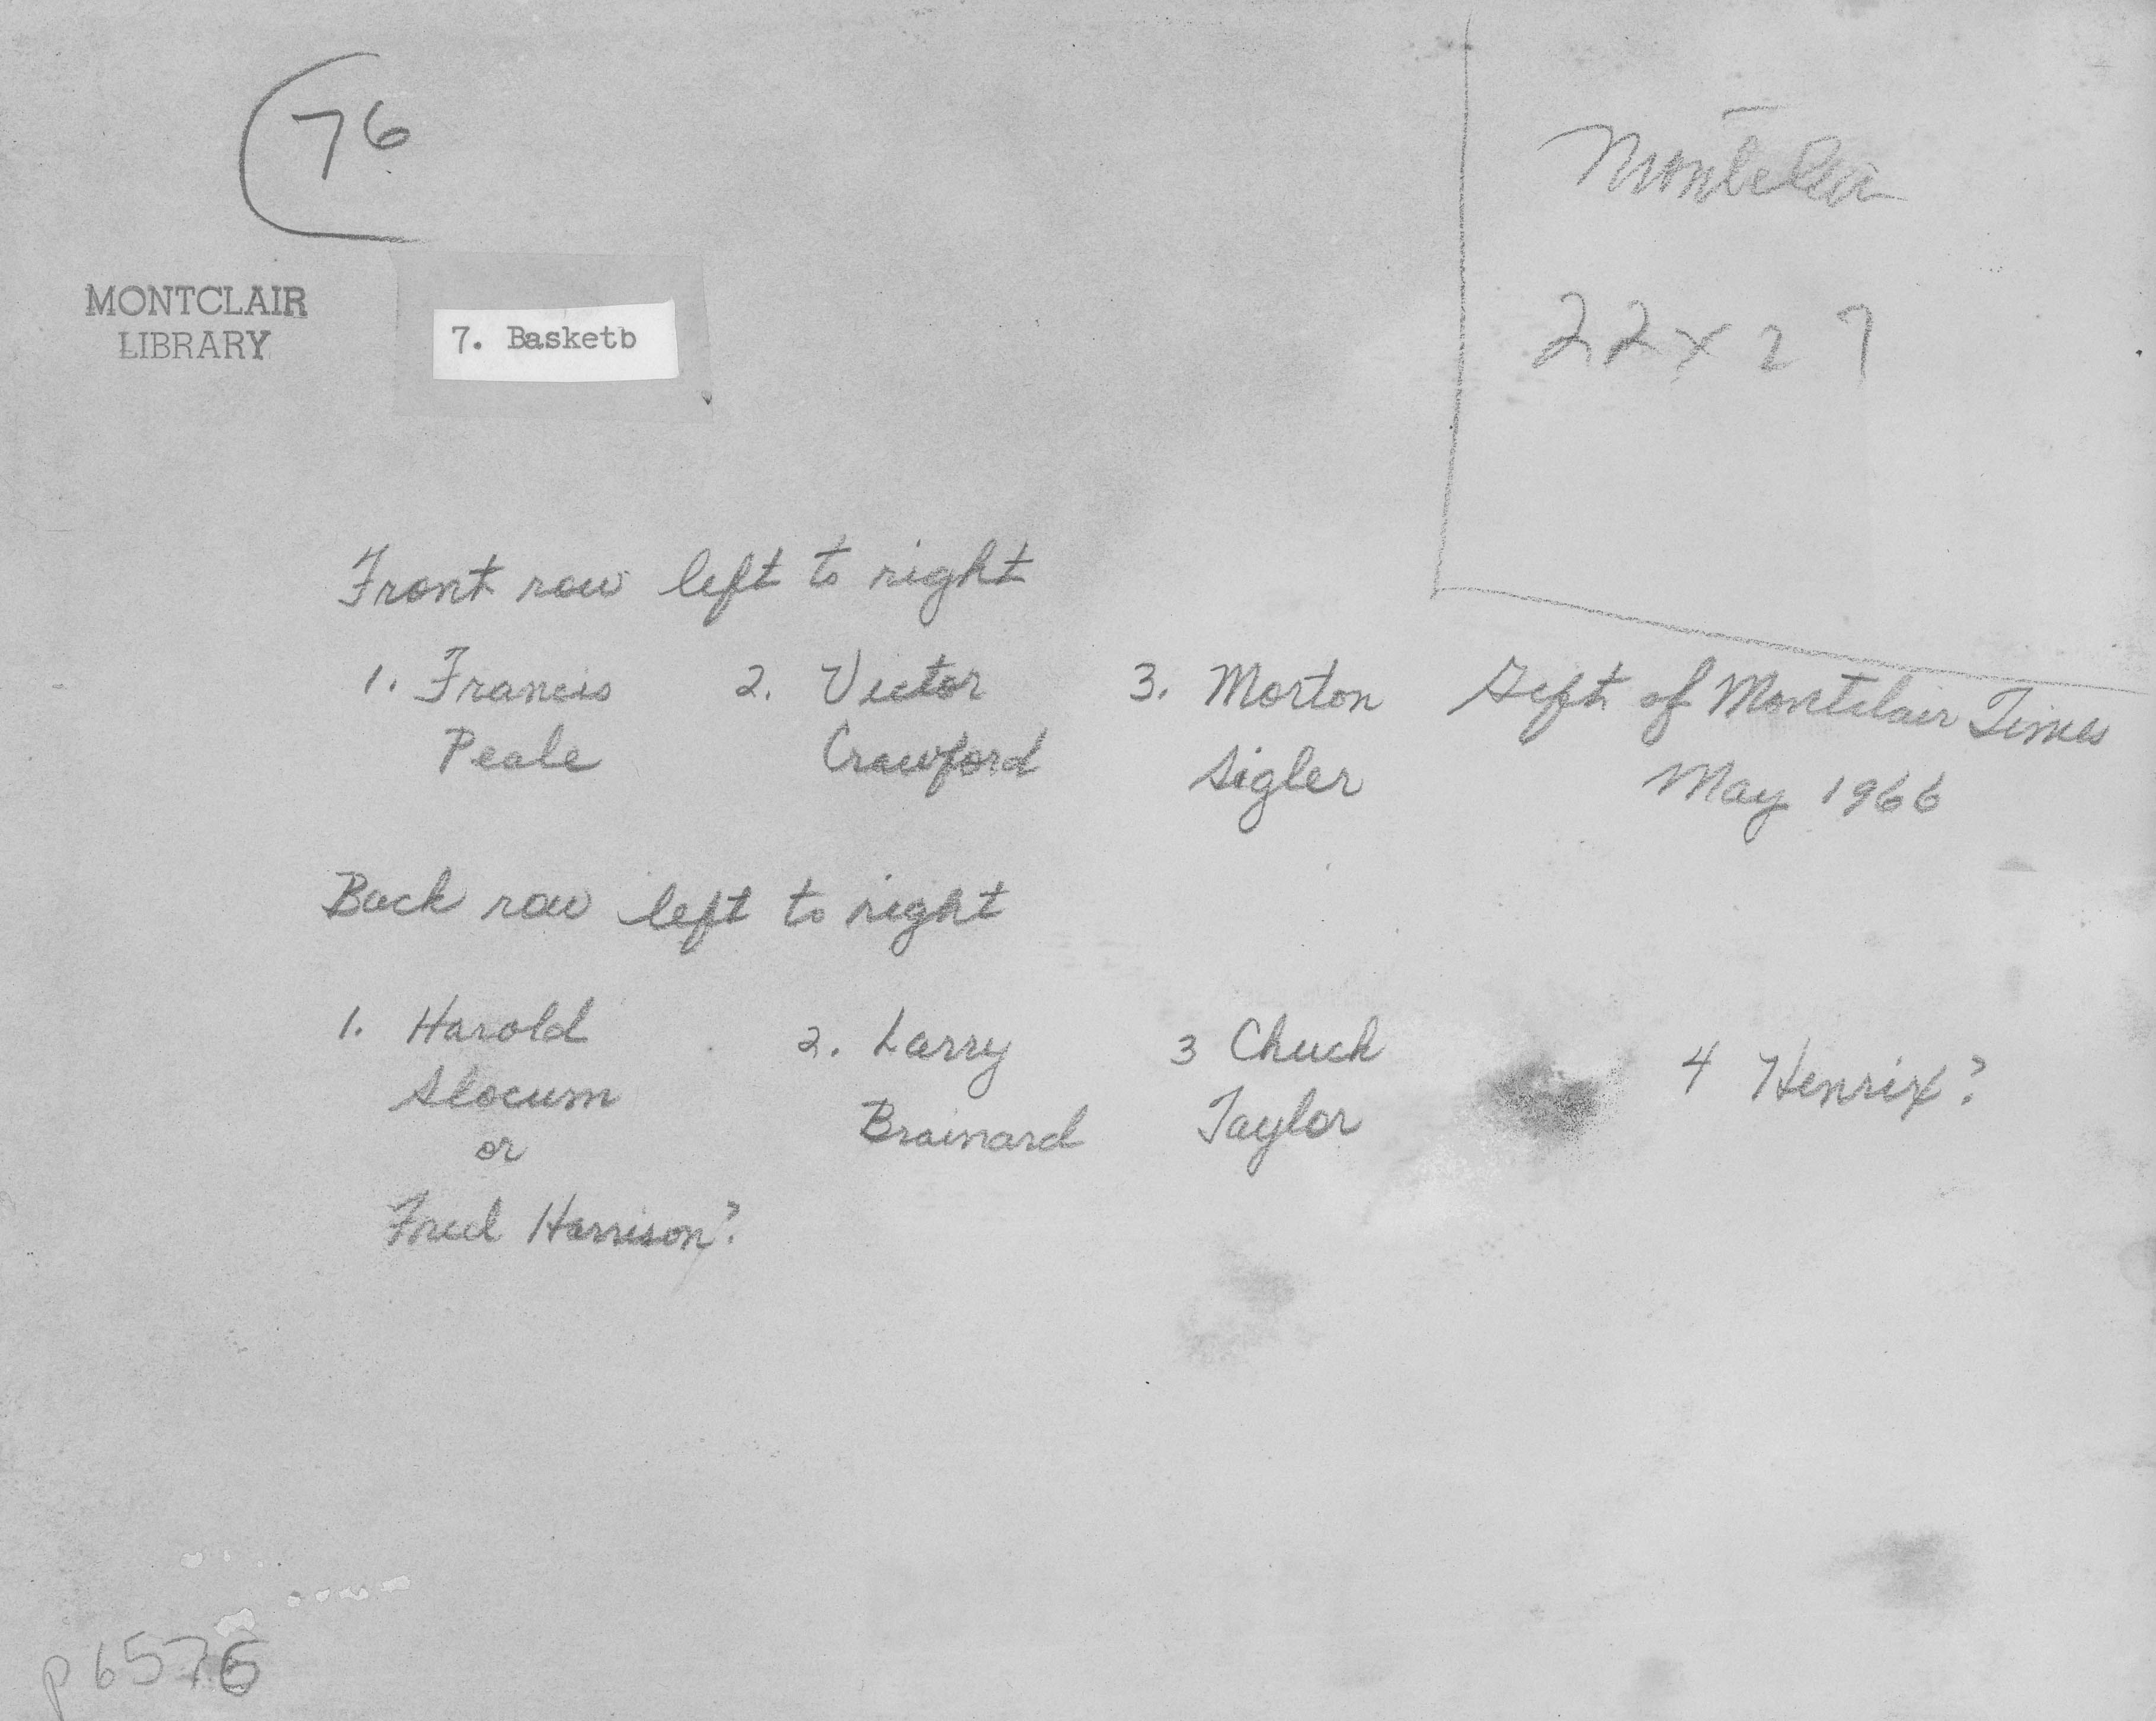 76
Montclair
MONTCLAIR
LIBRARY
7. Basketb
22 x 27
Front row left to right
1. Francis 2. Victor 3. Morton
Peale Crawford Sigler
Gift of Montclair Times
May 1966
Back row left to right
1. Harold 2. Larry 3 Chuck 4 Henrix?
Slocum Brainard Taylor
or
Fred Harrison?
p6576